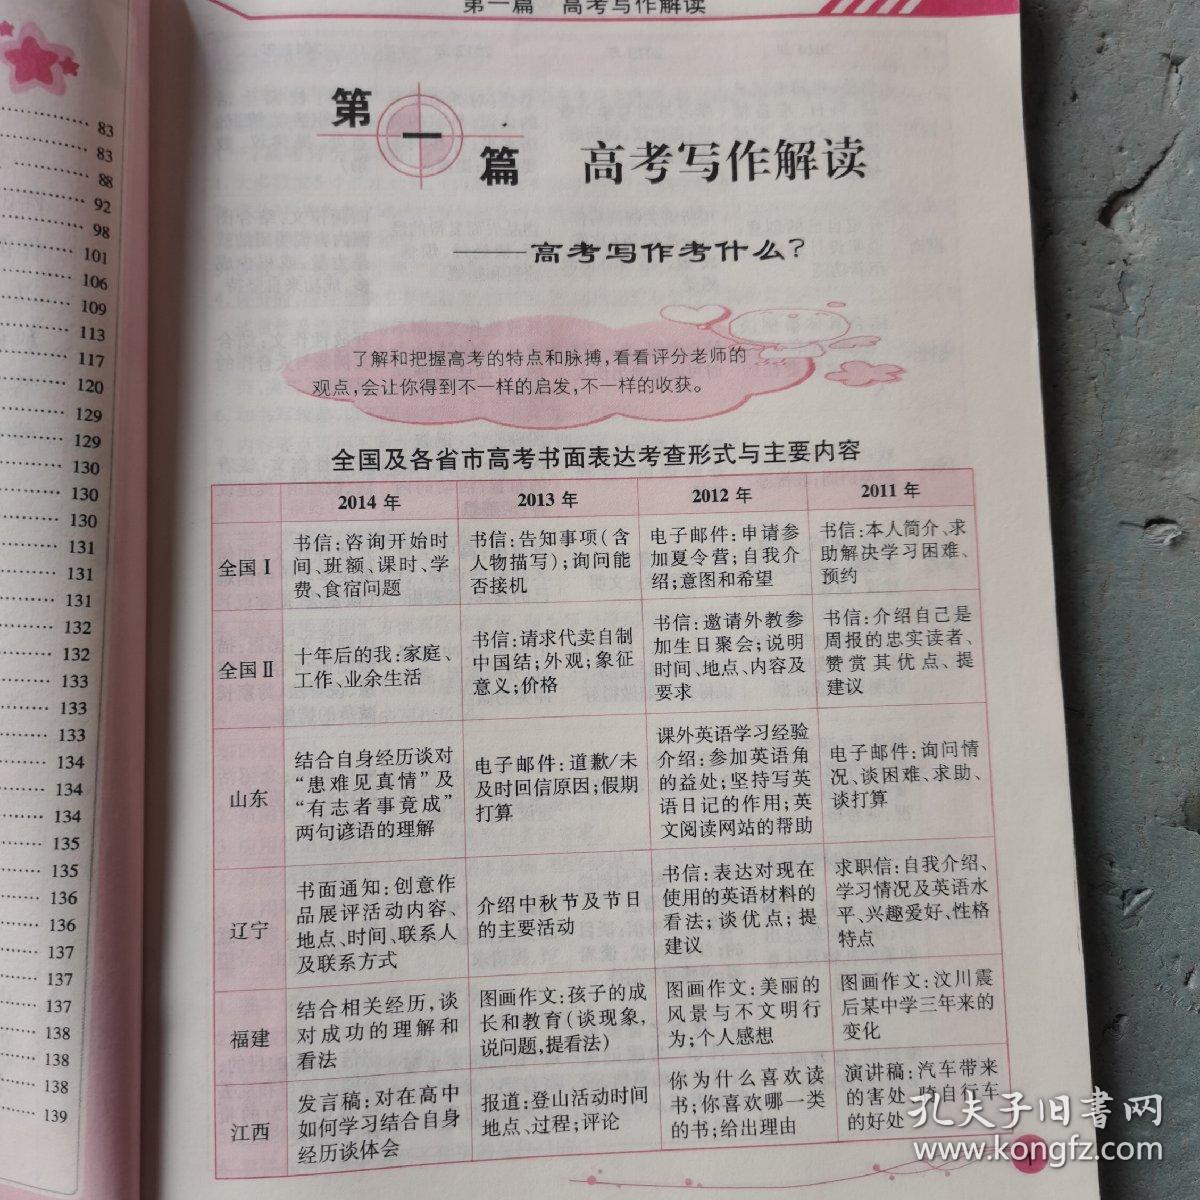 第一篇 高考写作解读
83
83
88
92
98
101
106
109
113
117
120
129
129
130
130
130
131
131
131
132
132
133
133
133
134
134
134
135
135
136
136
137
137
137
138
138
138
139
第一篇 高考写作解读
——高考写作考什么?
了解和把握高考的特点和脉搏,看看评分老师的
观点,会让你得到不一样的启发,不一样的收获。
全国及各省市高考书面表达考查形式与主要内容
2014 年
2013 年
2012 年
2011 年
全国Ⅰ
书信:咨询开始时
间、班额、课时、学
费、食宿问题
书信:告知事项(含
人物描写);询问能
否接机
电子邮件:申请参
加夏令营;自我介
绍;意图和希望
书信:本人简介、求
助解决学习困难、
预约
全国Ⅱ
十年后的我:家庭、
工作、业余生活
书信:请求代卖自制
中国结;外观;象征
意义;价格
书信:邀请外教参
加生日聚会;说明
时间、地点、内容及
要求
书信:介绍自己是
周报的忠实读者、
赞赏其优点、提
建议
山东
结合自身经历谈对
“患难见真情”及
“有志者事竟成”
两句谚语的理解
电子邮件:道歉/未
及时回信原因;假期
打算
课外英语学习经验
介绍:参加英语角
的益处;坚持写英
语日记的作用;英
文阅读网站的帮助
电子邮件:询问情
况、谈困难、求助、
谈打算
辽宁
书面通知:创意作
品展评活动内容、
地点、时间、联系人
及联系方式
介绍中秋节及节日
的主要活动
书信:表达对现在
使用的英语材料的
看法;谈优点;提
建议
求职信:自我介绍、
学习情况及英语水
平、兴趣爱好、性格
特点
福建
结合相关经历,谈
对成功的理解和
看法
图画作文:孩子的成
长和教育(谈现象,
说问题,提看法)
图画作文:美丽的
风景与不文明行
为;个人感想
图画作文:汶川震
后某中学三年来的
变化
江西
发言稿:对在高中
如何学习结合自身
经历谈体会
报道:登山活动时间
地点、过程;评论
你为什么喜欢读
书;你喜欢哪一类
的书;给出理由
演讲稿:汽车带来
的害处、骑自行车
的好处
1
孔夫子旧书网
www.kongfz.com